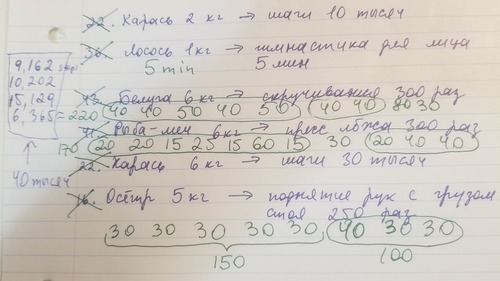 22. Карась 2 кг → шаги 10 тысяч
30. Лосось 1 кг → гимнастика для лица
5 min 5 мин
9,162 steps
10,202
15,129
6,365
43. Белуга 6 кг → скручивание 300 раз
= 220 40 40 50 40 50 40 40 30
41. Рыба-меч 6 кг → пресс лёжа 300 раз
170 20 20 15 25 15 60 15 30 20 40 40
40 тысяч
22. Карась 6 кг → шаги 30 тысяч
16. Осётр 5 кг → поднятие рук с грузом
стоя 250 раз
30 30 30 30 30 40 30 30
150 100